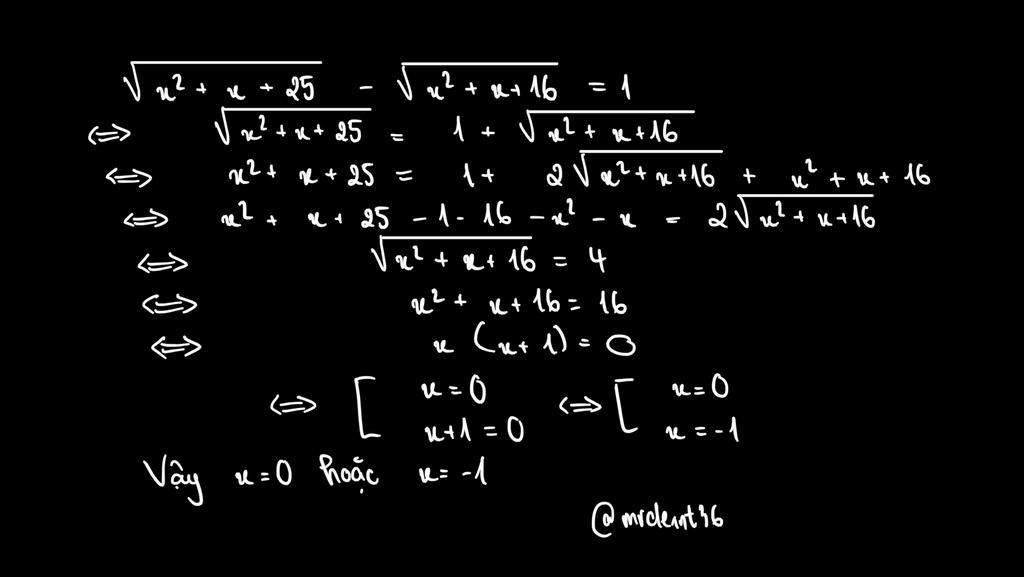 √(x² + x + 25) - √(x² + x + 16) = 1
⇔ √(x² + x + 25) = 1 + √(x² + x + 16)
⇔ x² + x + 25 = 1 + 2√(x² + x + 16) + x² + x + 16
⇔ x² + x + 25 - 1 - 16 - x² - x = 2√(x² + x + 16)
⇔ √(x² + x + 16) = 4
⇔ x² + x + 16 = 16
⇔ x (x + 1) = 0
⇔ [ x = 0 ⇔ [ x = 0
x + 1 = 0 x = -1
Vậy x = 0 hoặc x = -1